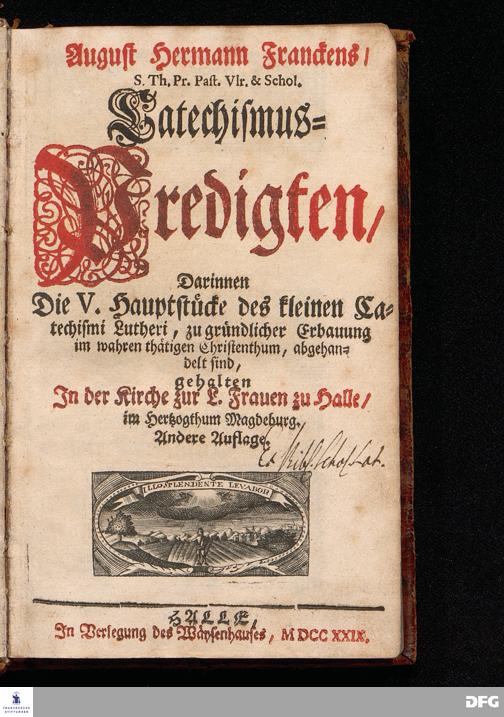 August Hermann Franckens/
S. Th. Pr. Past. Vlr. & Schol.
Catechismus-
Predigten/
Darinnen
Die V. Hauptstücke des kleinen Ca-
techismi Lutheri, zu gründlicher Erbauung
im wahren thätigen Christenthum, abgehan-
delt sind,
gehalten
In der Kirche zur L. Frauen zu Halle/
im Hertzogthum Magdeburg.
Andere Auflage.
Bibl. Schol. Lat.
ILLO SPLENDENTE LEVABOR
HALLE,
In Verlegung des Wäysenhauses, MDCC XXIX.
FRANCKESCHE
STIFTUNGEN
DFG